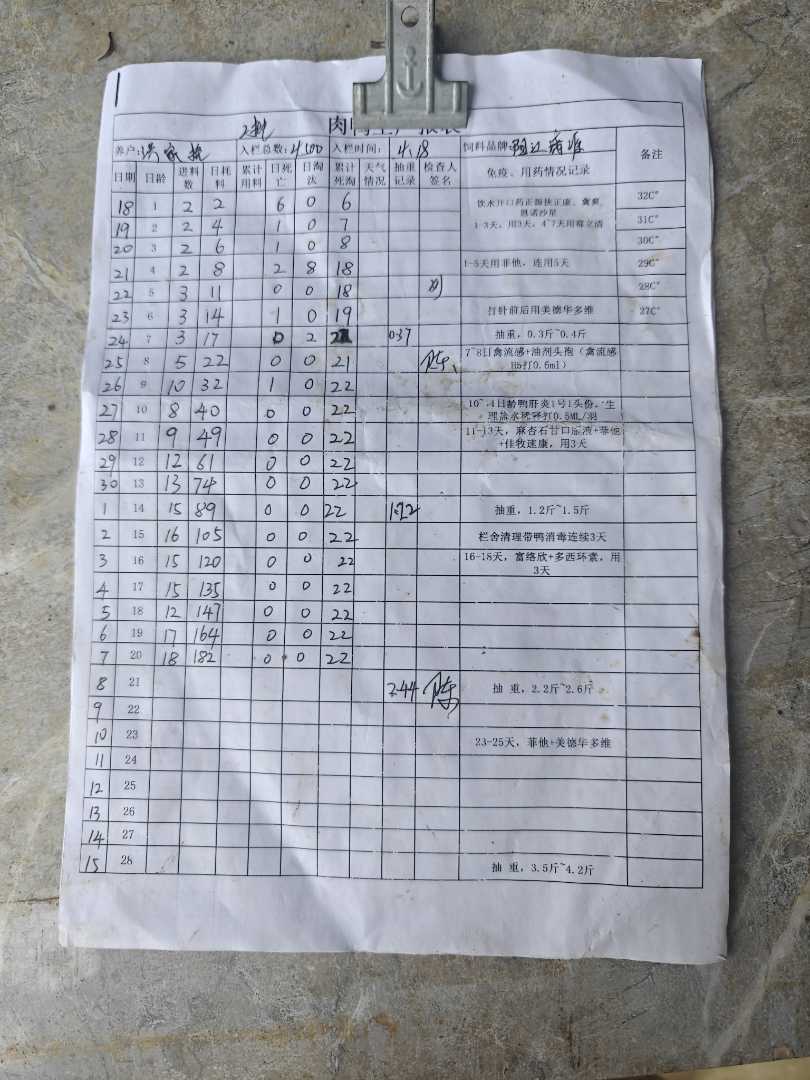 2批
养户: 入栏总数:4500 入栏时间: 4.18 饲料品牌: 备注
日期 日龄 进料数 日耗料 累计用料 日死亡 日淘汰 累计死淘 天气情况 抽重记录 检查人签名 免疫、用药情况记录
18 1 2 2 6 0 6 饮水开口药正源快正康、禽爽、恩诺沙星 32C°
19 2 2 4 1 0 7 1-3天，用3天，4~7天用霉立清 31C°
20 3 2 6 1 0 8 30C°
21 4 2 8 2 8 18 1-5天用菲他，连用5天 29C°
22 5 3 11 0 0 18 28C°
23 6 3 14 1 0 19 打针前后用美德华多维 27C°
24 7 3 17 0 2 21 0.37 抽重，0.3斤~0.4斤
25 8 5 22 0 0 21 陈 7~8日禽流感+油剂头孢（禽流感Hb打0.5ml）
26 9 10 32 1 0 22
27 10 8 40 0 0 22 日龄鸭肝炎1号1头份，生理盐水稀释打0.5ML/羽
28 11 9 49 0 0 22 11-13天，麻杏石甘口服液+菲他+佳牧速康，用3天
29 12 12 61 0 0 22
30 13 13 74 0 0 22
1 14 15 89 0 0 22 1.22 抽重，1.2斤~1.5斤
2 15 16 105 0 0 22 栏舍清理带鸭消毒连续3天
3 16 15 120 0 0 22 16-18天，富络欣+多西环素，用3天
4 17 15 135 0 0 22
5 18 12 147 0 0 22
6 19 17 164 0 0 22
7 20 18 182 0 0 22
8 21 2.44 陈 抽 重，2.2斤~2.6斤
9 22
10 23 23-25天，菲他+美德华多维
11 24
12 25
13 26
14 27
15 28 抽 重，3.5斤~4.2斤